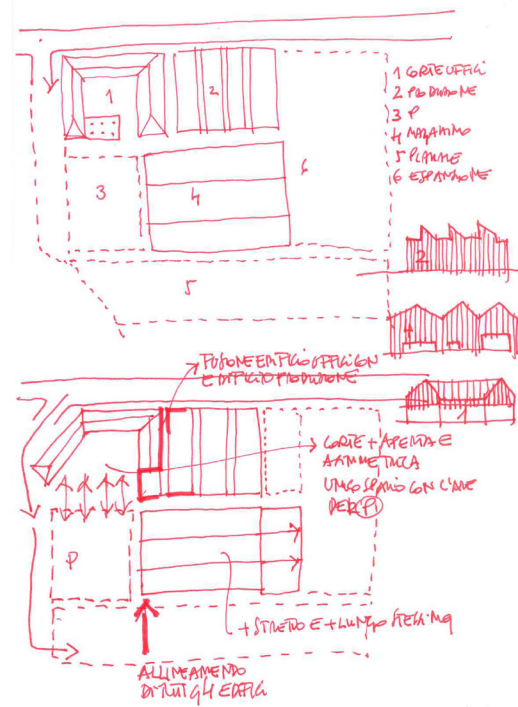 1 CORTE UFFICI
2 PRODUZIONE
3 P
4 MAGAZZINO
5 PIAZZALE
6 ESPANSIONE
1
2
3
4
5
6
2
4
1
FUSIONE EDIFICIO UFFICI CON
EDIFICIO PRODUZIONE
CORTE + APERTA E
ASIMMETRICA
UNICO SPAZIO CON L'AREA
DEL P
P
+ STRETTO E + LUNGO STESSI MQ
ALLINEAMENTO
DI TUTTI GLI EDIFICI